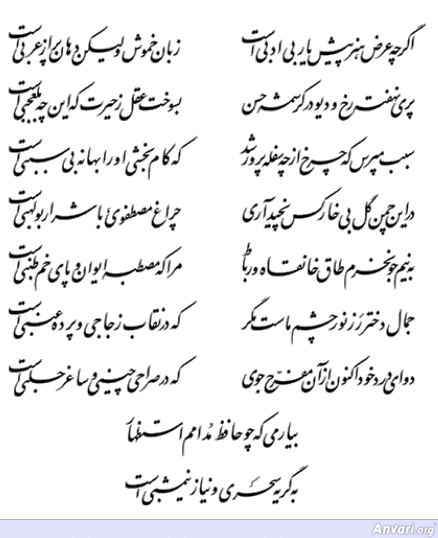 اگرچه عرض هنر پیش یار بی ادبی است زبان خموش ولیکن دهان پر از عربی است
پری نهفته رخ و دیو در کرشمه حسن بسوخت عقل ز حیرت که این چه بلعجبی است
سبب مپرس که چرخ از چه سفله پرور شد که کام بخشی او را بهانه بی سببی است
در این چمن گل بی خار کس نچید آری چراغ مصطفوی با شرار بولهبی است
به نیم جو نخرم طاق خانقاه و رباط مرا که مصطبه ایوان و پای خم طنبی است
جمال دختر رز نور چشم ماست مگر که در نقاب زجاجی و پرده عنبی است
دوای درد خود اکنون از آن مفرح جوی که در صراحی چینی و ساغر حلبی است
بیار می که چو حافظ مدامم استظهار
به گریه سحری و نیاز نیمشبی است
Anvari.org